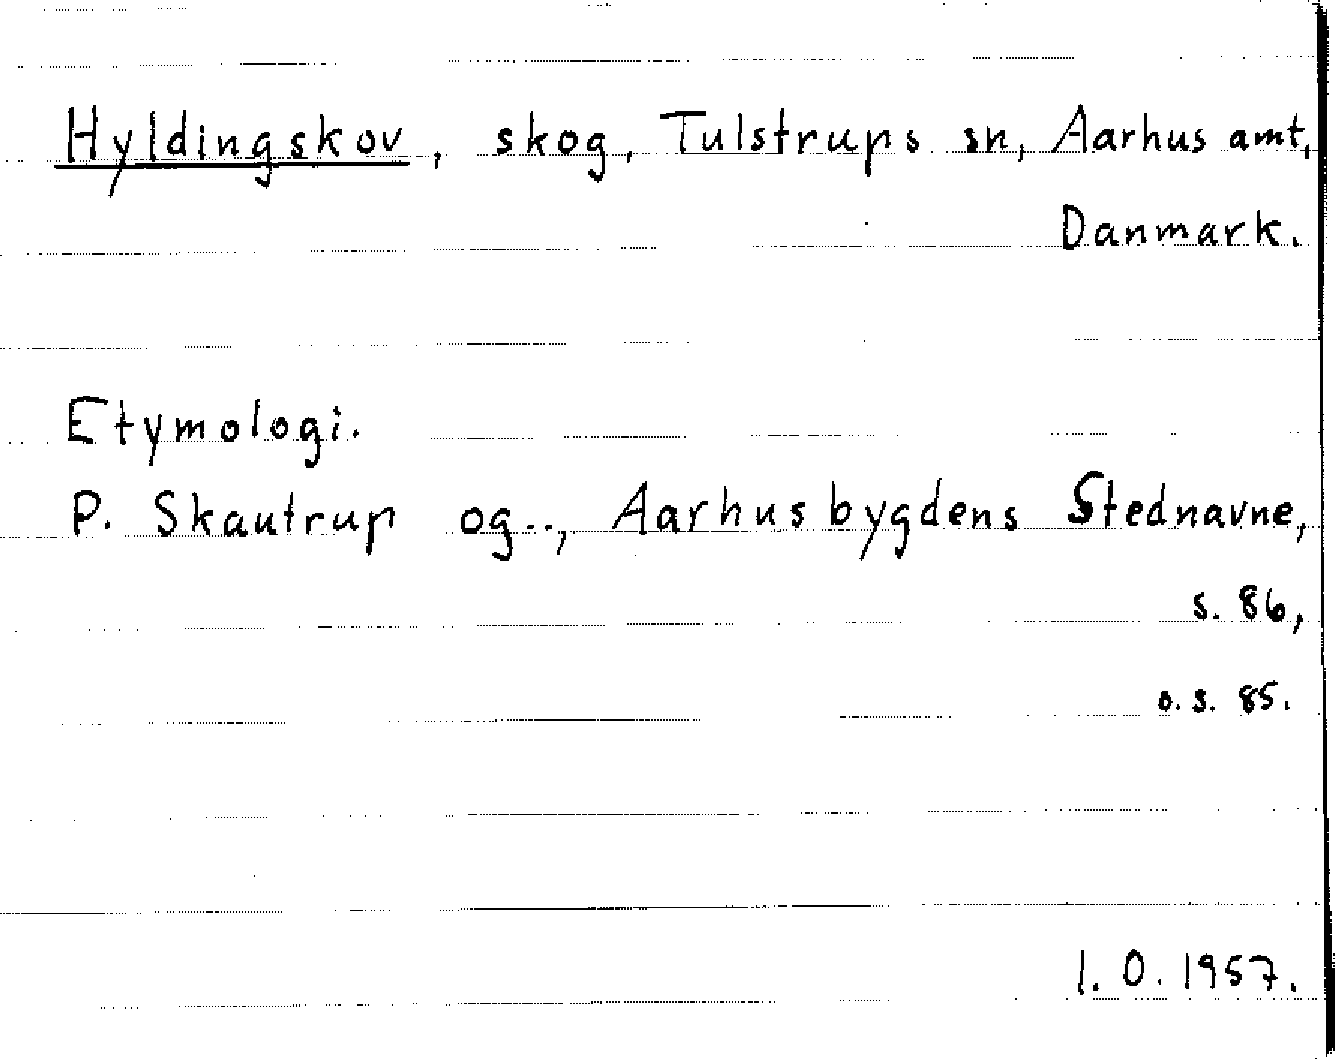 Hyldingskov, skog, Tulstrups sn, Aarhus amt,
Danmark.
Etymologi.
P. Skautrup og.., Aarhusbygdens Stednavne,
s. 86,
o. s. 85.
I. O. 1957.